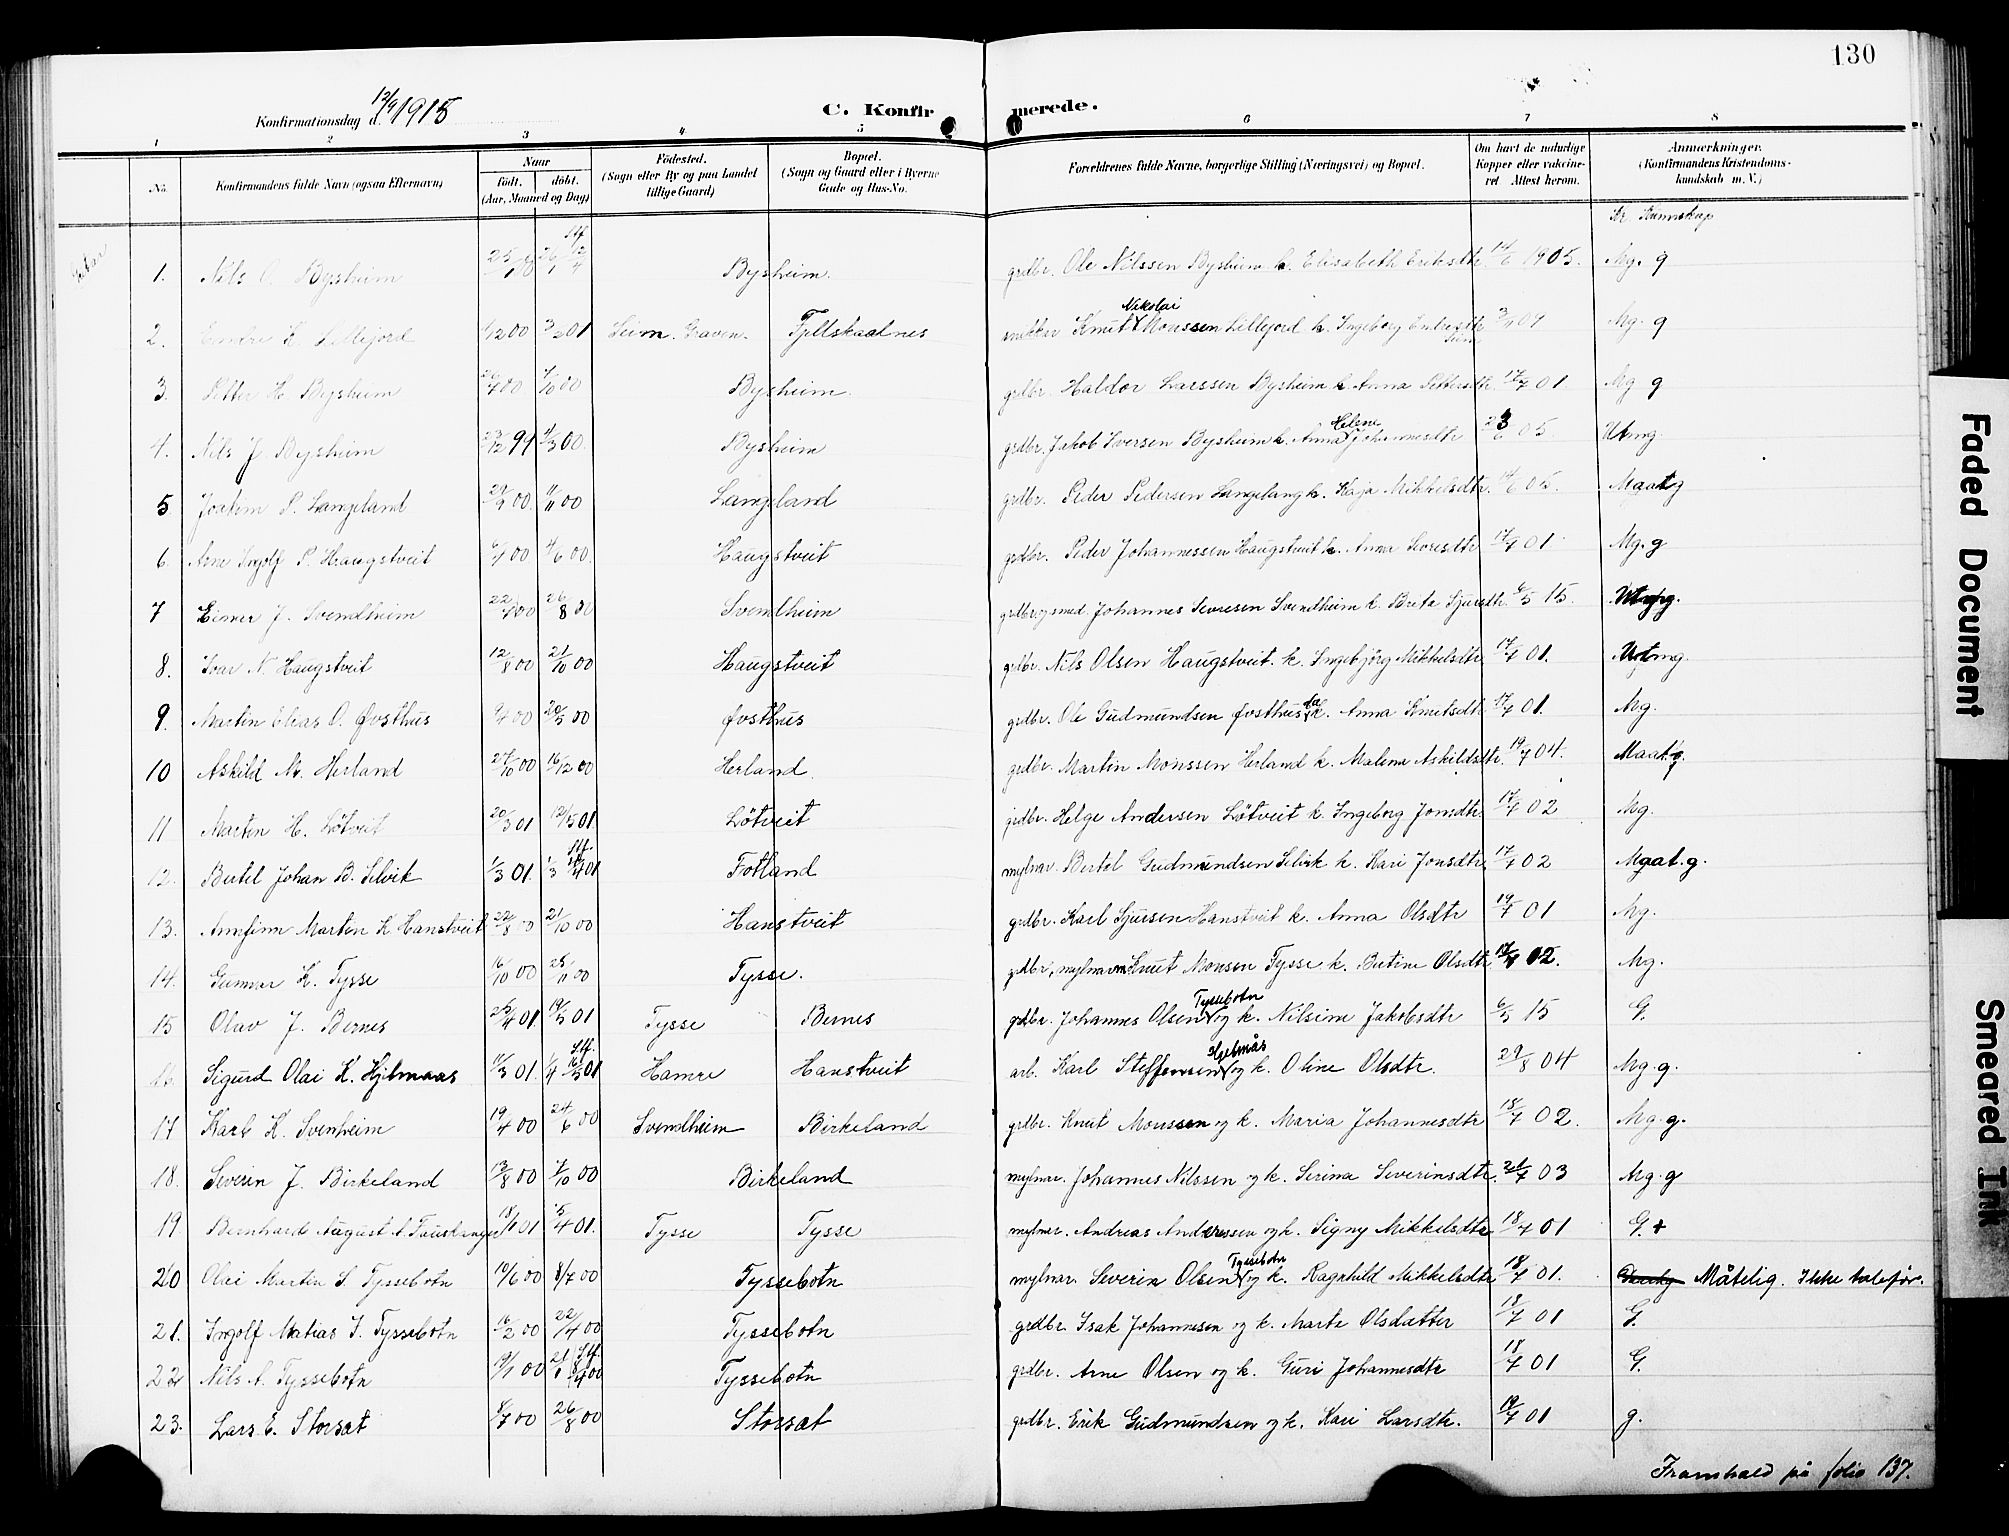 130
12/9 1915
Konfirmationsdag d.
C. Konfirmerede.
1 2 3 4 5 6 7 8
No.
Konfirmandens fulde Navn (ogsaa Efternavn)
Naar
født. døbt.
(Aar, Maaned og Dag)
Fødested.
(Sogn eller By og paa Landet
tillige Gaard)
Bopæl.
(Sogn og Gaard eller i Byerne
Gade og Hus-No.
Forældrenes fulde Navne, borgerlige Stilling (Næringsvei) og Bopæl.
Om havt de naturlige
Kopper eller vaccine-
ret Attest herom.
Anmærkninger.
(Konfirmandens Kristendoms-
kundskab m. V.)
Kr. Kunnskap
Gutar
1. Nils O. Bysheim Stf Bysheim. grdbr. Ole Nilssen Bysheim k. Elisabeth Eriksdtr 14/6 1905. Mg. g
2. Endre K. Lillejord 3/2 01 Seim. Graven. Fjellskaalnes snikkar Knut Nikolai Monssen Lillejord k. Ingeborg Endresdtr Seim Mg. g
3. Petter H. Bysheim Bysheim. grdbr. Haldor Larssen Bysheim k. Anna Pettersdtr. 17/7 01 Mg g
4. Nils J. Bysheim 29/12 99 4/3 00. Bysheim grdbr. Jakob Iversen Bysheim k. Anna Helene Johannesdtr 05 Utmg.
5 Joakim P. Langeland Langeland grdbr. Peder Pedersen Langeland k. Kaja Mikkelsdtr. 14/6 05. Maat g
6. Arne Ingolf P. Haugstveit 4/6 00. Haugstveit grdbr. Peder Johannessen Haugstveit k. Anna Sevresdtr 17/7 01 Mg. g
7 Einar J. Svendheim 26/8 00 Svendheim grdbr. og smed. Johannes Sevresen Svendheim k. Brita Sjursdtr. 6/5 15.
8. Ivar N. Haugstveit 12/8 00 21/10 00 Haugstveit grdbr. Nils Olsen Haugstveit. k. Ingebjörg Mikkelsdtr. 17/7 01. Utmg.
9. Martin Elias O. Øvsthus 9/4 00 20/5 00 Øvsthus grdbr. Ole Gudmundsen Øvsthus k. Anna Knutsdtr 17/7 01. Mg.
10 Askild M. Herland 27/10 00 16/12 00 Herland. grdbr. Martin Monssen Herland k. Malena Askildsdtr. 19/7 04. Maat. g.
11 Martin H. Lötveit 20/3 01 Lötveit grdbr. Helge Andersen Lötveit k. Ingeborg Jonsdtr. 17/7 02 Mg.
12. Bertel Johan B. Selvik 1/3 01. Stf. Fotland mylnar. Bertel Gudmundsen Selvik k. Kari Jonsdtr. 17/7 02 Mgaat. g.
13. Arnfinn Martin K Hanstveit 22/8 00 21/10 00 Hanstveit grdbr. Karl Sjursen Hanstveit k. Anna Olsdtr 19/7 01 Mg.
14. Gunnar K. Tysse 16/10 00 25/11 00 Tysse. grdbr, mylnar Knut Monsen Tysse k. Bertine Olsdtr 17/7 02. Mg.
15 Olav J. Bernes 25/4 01 19/5 01 Tysse Bernes grdbr. Johannes Olsen Tyssebotn og k. Nilsine Jakobsdtr 6/5 15 G.
16. Sigurd Olai K. Hjelmaas 11/3 01. Stf. Hamre Hanstveit arb. Karl Steffensen Hjelmås og k. Oline Olsdtr. 29/8 04 Mg. g.
17 Karl K. Svenheim 19/4 00 24/6 00 Svendheim Birkeland grdbr. Knut Monssen og k. Maria Johannesdtr 18/7 02. Mg. g.
18. Severin J. Birkeland 13/8 00 7/10 00 Birkeland mylnar. Johannes Nilssen og k. Serina Severinsdtr. 21/7 03 Mg. g
19 Bernhard August A. Fauskanger 18/1 01 5/4 01. Tysse Tysse mylnar. Andreas Anderssen og k. Signy Mikkelsdtr 18/7 01 G. +
20 Olai Martin S. Tyssebotn 10/6 00 8/7 00 Tyssebotn mylnar. Severin Olsen Tyssebotn og k. Ragnhild Mikkelsdtr 18/7 01. Måtelig. Ikke talefør.
21. Ingolf Matias I. Tyssebotn 16/2 00 22/4 00 Tyssebotn grdbr. Isak Johannesen og k. Marta Olsdatter 18/7 01 G.
22 Nils A. Tyssebotn 19/1 00 Stf. Tyssebotn grdbr. Arne Olsen og k. Guri Johannesdtr 18/7 01 G.
23. Lars E. Storsæt 8/7 00 26/8 00 Storsæt grdbr. Erik Gudmundsen og k. Kari Larsdtr. 19/7 01 g.
Framhald på folio 137.
Faded Document
Smeared Ink